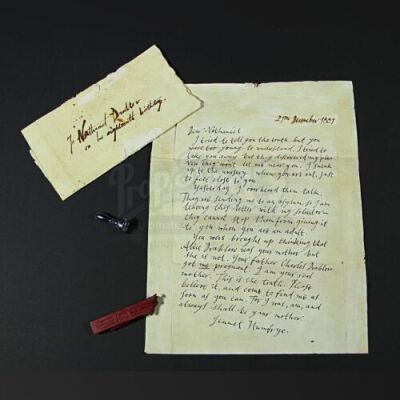 To Nathaniel Drablow
on his eighteenth birthday.
27th December 1889
Dear Nathaniel
I tried to tell you the truth but you
were too young to understand. I tried to
take you away but they discovered my plan.
Now they won't let me near you. I sneak
up to the nursery when you are out, just
to feel close to you.
Yesterday I overheard them talk.
They are sending me to an asylum, so I am
leaving this letter with my solicitor
they cannot stop them from giving it
to you when you are an adult.
You were brought up thinking that
Alice Drablow was your mother but
she is not. Your father Charles Drablow
got me pregnant. I am your real
mother. This is the truth. Please
believe it and come to find me as
soon as you can. For I was, am, and
always shall be your mother.
Jennet Humfrye.
Prop